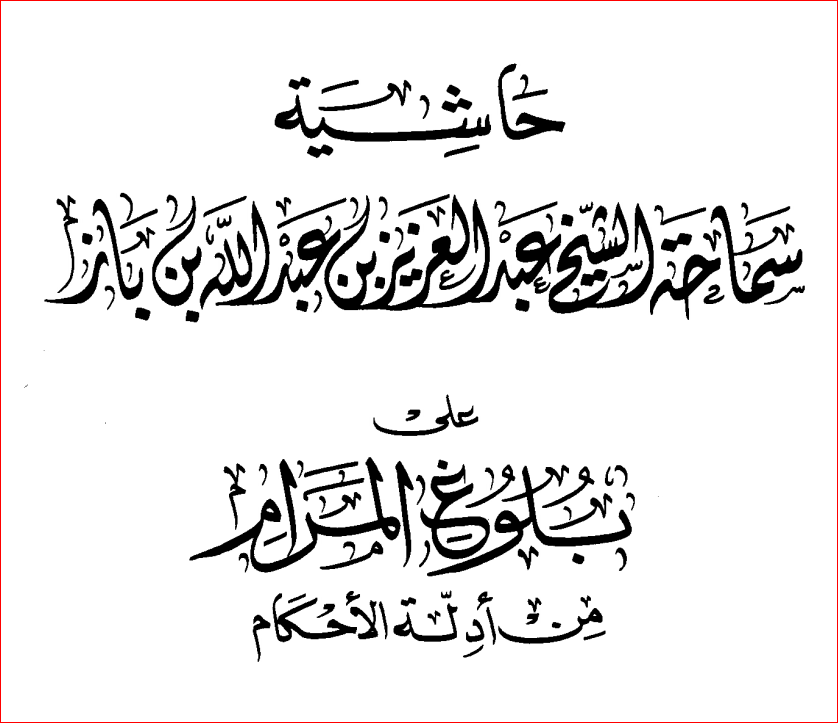 حَاشِيَة
سَمَاحَة الشَّيْخ عَبْد العَزِيز بن عَبْد اللَّه بن بَاز
على
بُلُوغ المَرَامِ
مِنْ أَدِلَّة الأَحْكَام